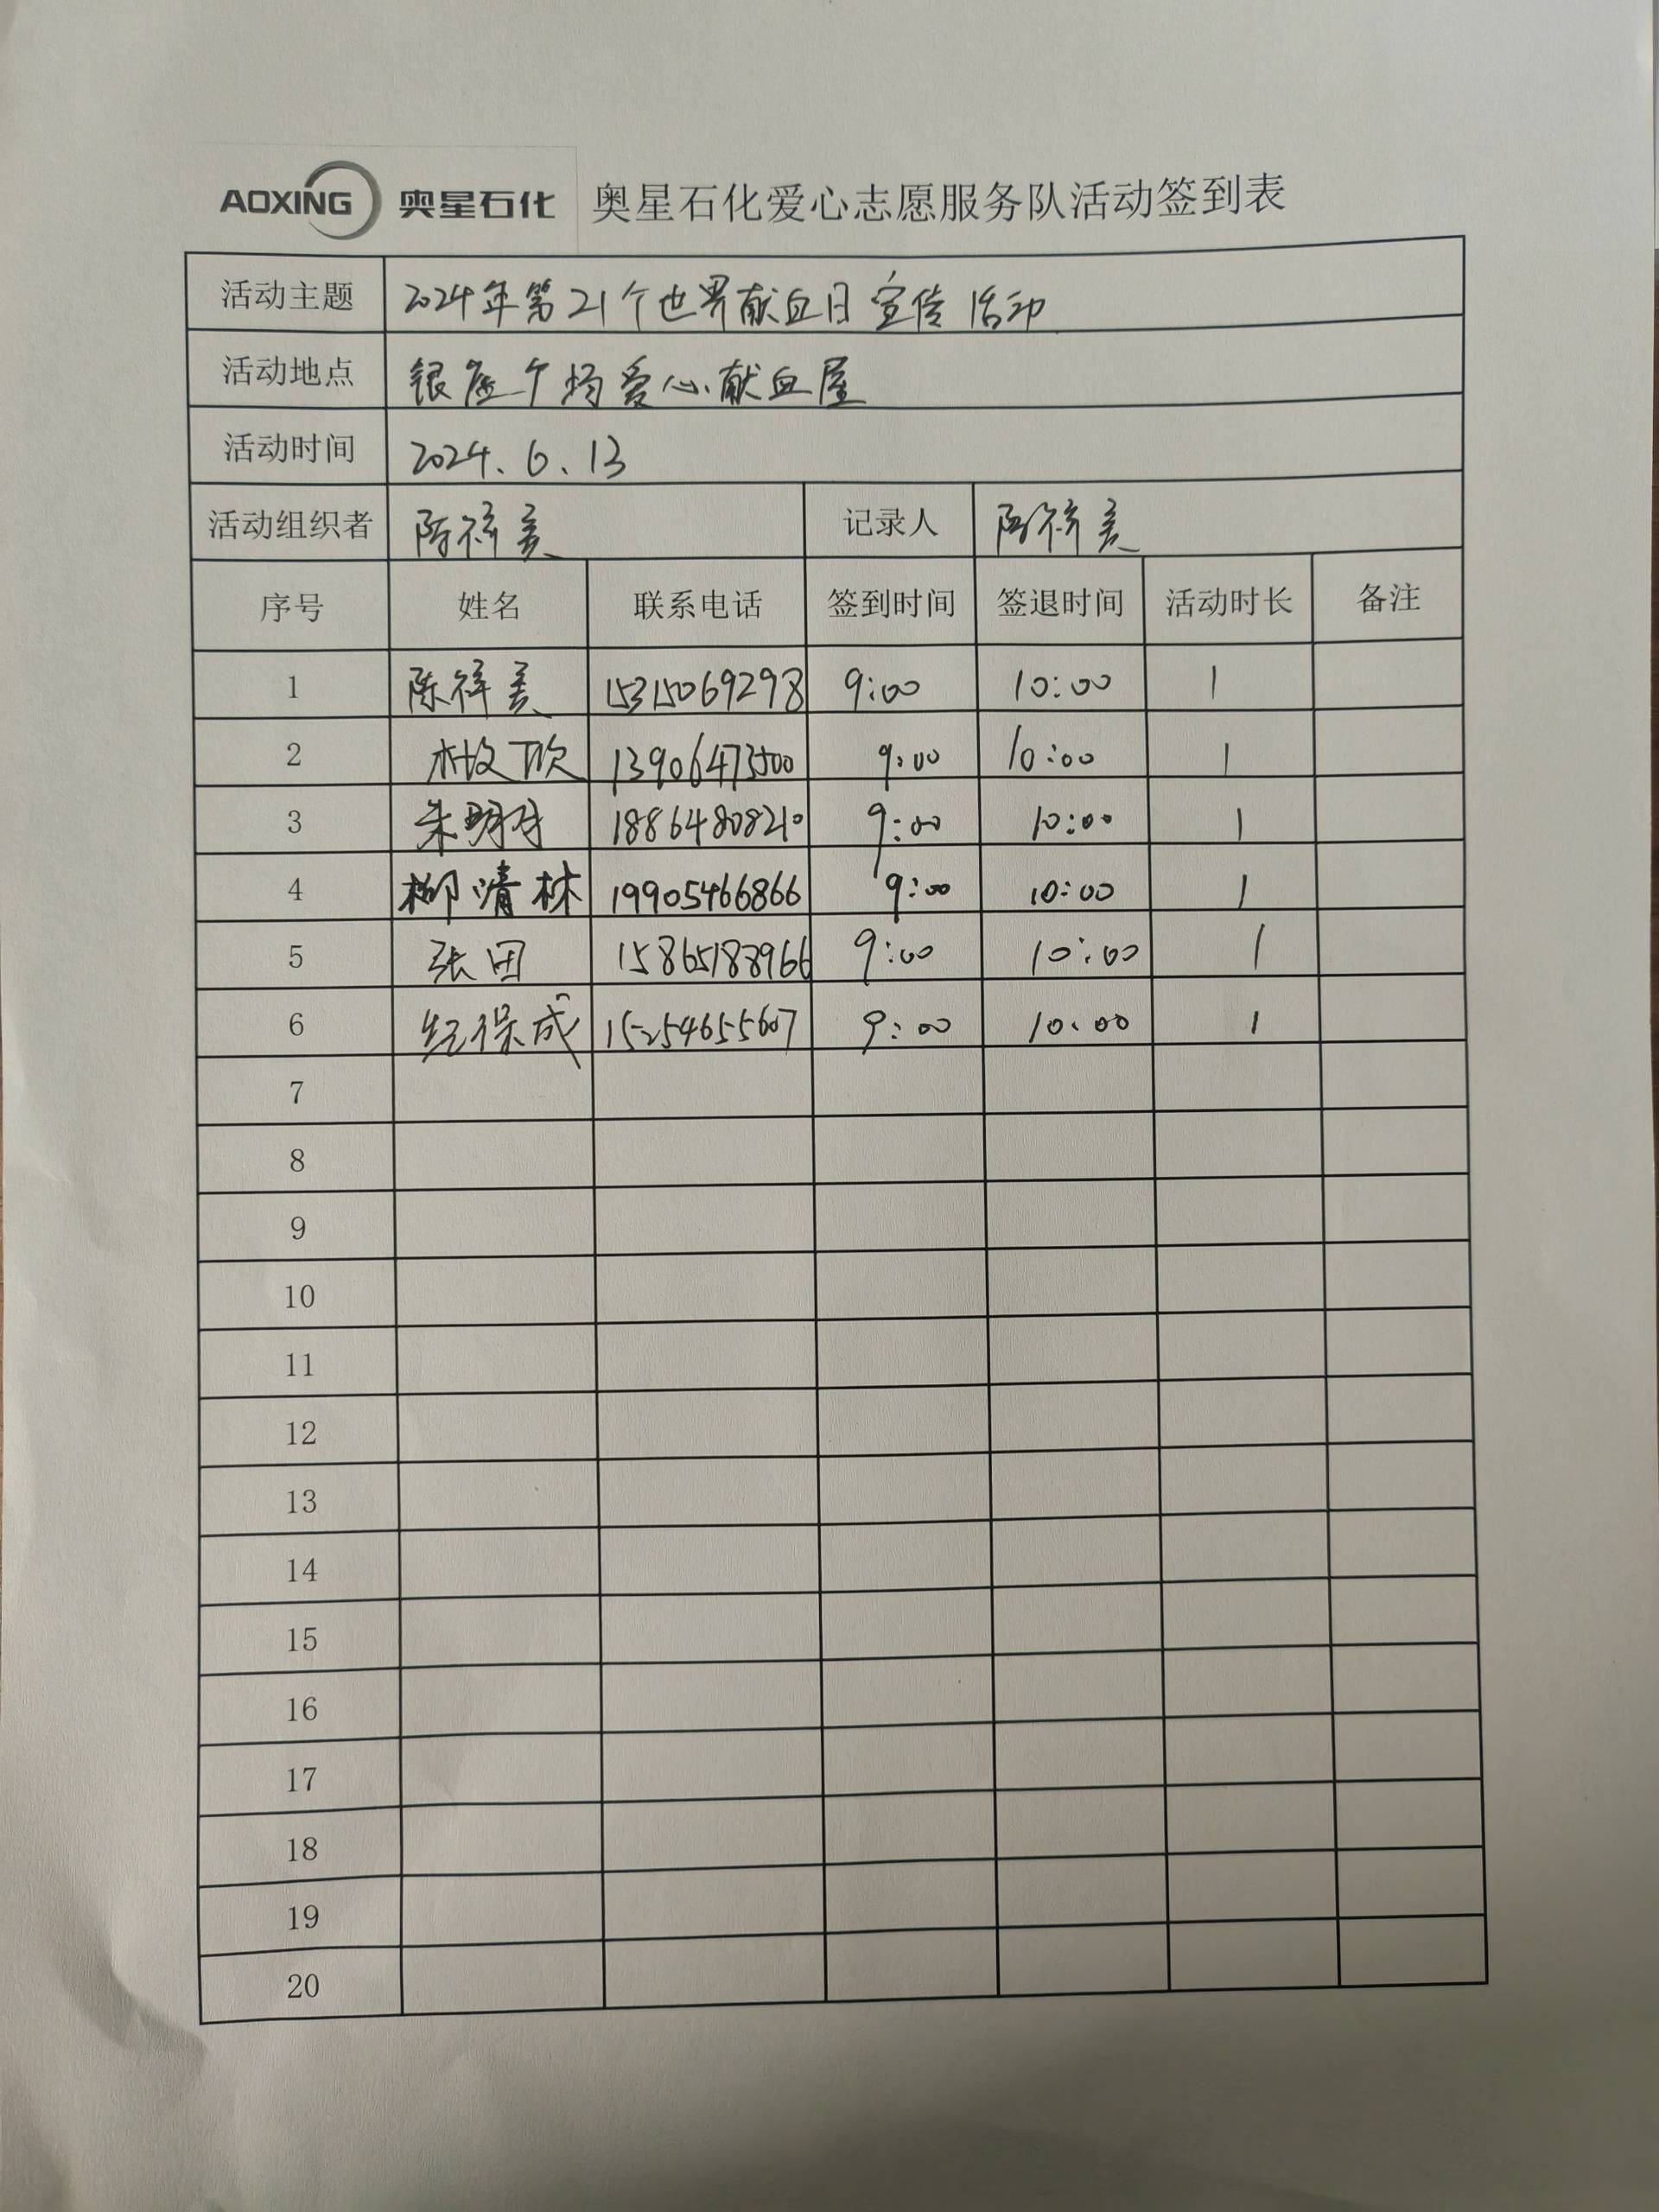 AOXING 奥星石化 奥星石化爱心志愿服务队活动签到表
活动主题 2024年第21个世界献血日宣传活动
活动地点 银座广场爱心献血屋
活动时间 2024.6.13
活动组织者 陈祥美 记录人 陈祥美
序号 姓名 联系电话 签到时间 签退时间 活动时长 备注
1 陈祥美 15315069298 9:00 10:00 1
2 13906473500 9:00 10:00 1
3 朱明月 18864808210 9:00 10:00 1
4 柳清林 19905466866 9:00 10:00 1
5 张田 15865188966 9:00 10:00 1
6 纪保成 15254655607 9:00 10:00 1
7
8
9
10
11
12
13
14
15
16
17
18
19
20